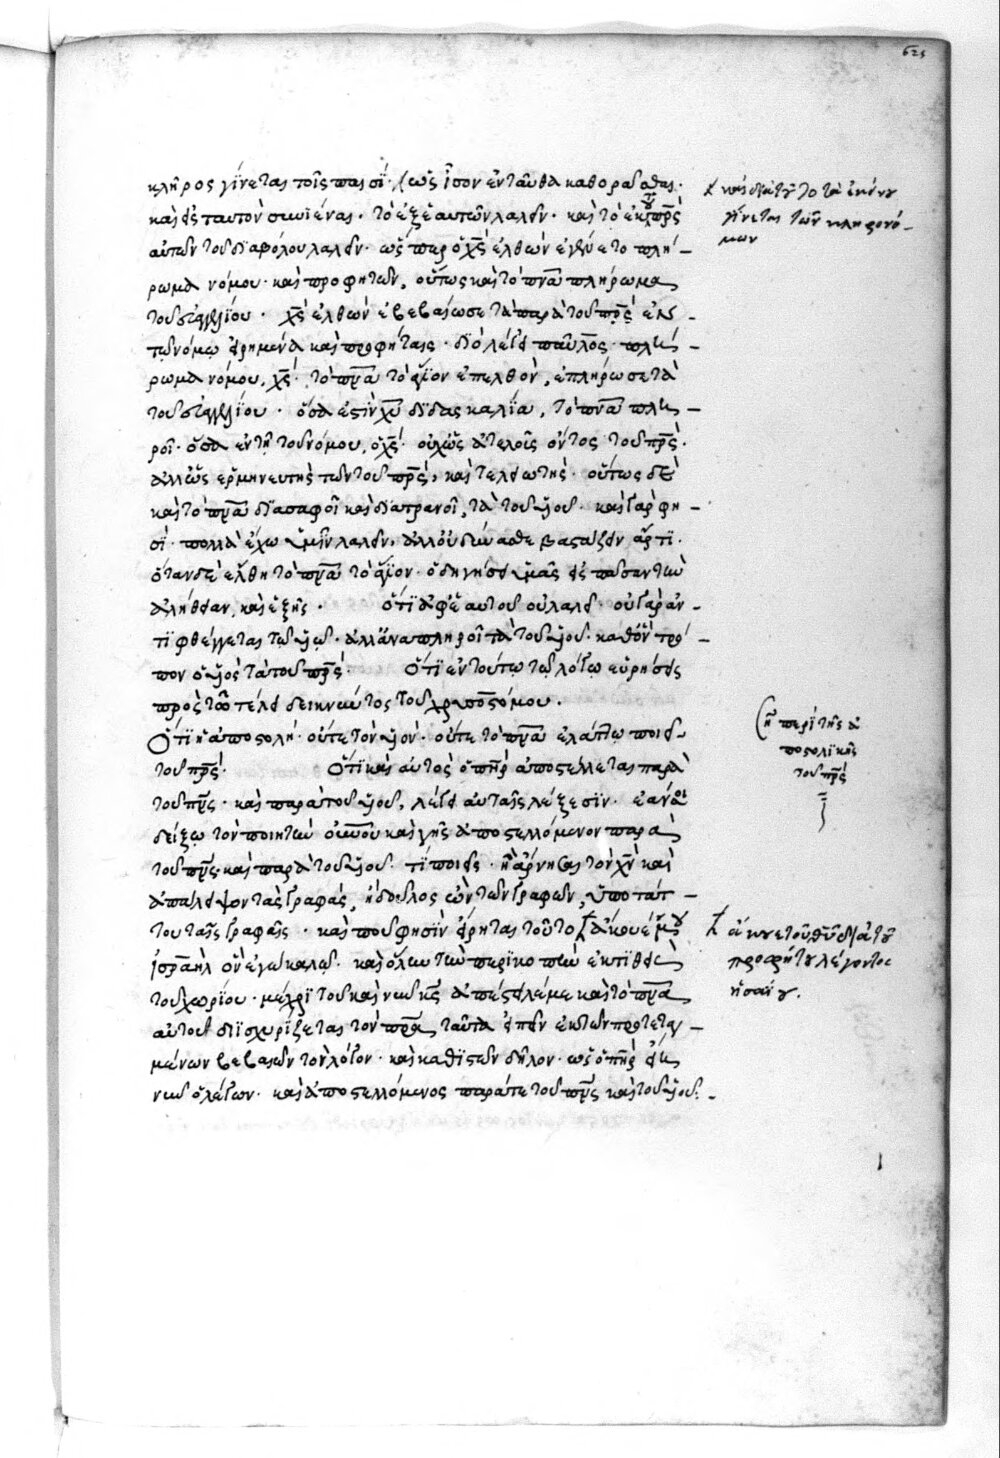 625
κλῆρος γίνεται τοῖς πᾶσι· ὡς ἴσον ἐνταῦθα καθορᾶσθαι·
καὶ εἰς ταυτὸν συνιέναι· τὸ ἐξ ἑαυτῶν λαλεῖν· καὶ τὸ ἐκ τοῦ πρ̅ς
αὐτῶν τοῦ διαβόλου λαλεῖν· ὥσπερ ὁ χ̅ς ἐλθὼν ἐγένετο πλή-
ρωμα νόμου· καὶ προφητῶν, οὕτως καὶ τὸ πν̅α πλήρωμα
τοῦ εὐαγγελίου· χ̅ς ἐλθὼν ἐβεβαίωσε τὰ παρὰ τοῦ πρ̅ς ἐν
τῷ νόμῳ εἰρημένα καὶ προφήταις· διὸ λέγει παῦλος· πλή-
ρωμα νόμου, χ̅ς· τὸ πν̅α τὸ ἅγιον ἐπελθὸν, ἐπλήρωσε τὰ
τοῦ εὐαγγελίου· ὅσα ἐστὶν χ̅υ διδασκαλία, τὸ πν̅α πλη-
ροῖ· ὅσα ἐν τῇ τοῦ νόμου, ὁ χ̅ς· οὐχ ὡς ἀτελοῦς ὄντος τοῦ πρ̅ς·
ἀλλ' ὡς ἑρμηνευτὴς τῶν τοῦ πρ̅ς, καὶ τελειωτής· οὕτως δὲ
καὶ τὸ πν̅α διασαφοῖ καὶ διατρανοῖ, τὰ τοῦ υἱοῦ· καὶ γὰρ φη-
σί· πολλὰ ἔχω ὑμῖν λαλεῖν, ἀλλ' οὐ δύνασθε βαστάζειν ἄρτι·
ὅταν δὲ ἔλθῃ τὸ πν̅α τὸ ἅγιον· ὁδηγήσει ὑμᾶς εἰς πᾶσαν τὴν
ἀλήθειαν, καὶ ἑξῆς· ὅτι ἀφ' ἑαυτοῦ οὐ λαλεῖ· οὐ γὰρ ἀν-
τιφθέγγεται τῷ υἱῷ· ἀλλ' ἀναπληροῖ τὰ τοῦ υἱοῦ· καθ' ὃν τρό-
πον ὁ υἱὸς τὰ τοῦ πρ̅ς· ὅτι ἐν τούτῳ τῷ λόγῳ εὑρήσεις
πρὸς τῷ τέλει δεικνύντος τοῦ χρυσοστόμου.
Ὅτι ἡ ἀποστολὴ· οὔτε τὸν υἱὸν· οὔτε τὸ πν̅α ἐλάττω ποιεῖ
τοῦ πρ̅ς· Ὅτι καὶ αὐτὸς ὁ π̅ηρ ἀποστέλλεται παρὰ
τοῦ πν̅ς· καὶ παρὰ τοῦ υἱοῦ, λέγει αὐταῖς λέξεσιν· ἐὰν
δείξω τὸν ποιητὴν οὐ̅νου καὶ γῆς ἀποστελλόμενον παρὰ
τοῦ πν̅ς καὶ παρὰ τοῦ υἱοῦ· τί ποιεῖς· ἢ ἄρνησαι τὸν χ̅ν καὶ
ἀπάλειψον τὰς γραφάς, ἢ δοῦλος ὢν τῶν γραφῶν, ὑποτάτ-
του ταῖς γραφαῖς· καὶ ποῦ φησὶν εἴρηται τοῦτο ἄκουέ μου
ἰσρα̅ηλ ὃν ἐγὼ καλῶ· καὶ ὅλην τὴν περικοπὴν ἐκτιθεὶς
τοῦ χωρίου· μέχρι τοῦ καὶ νῦν κ̅ς ἀπέστειλέ με καὶ τὸ πν̅α
αὐτοῦ διϊσχυρίζεται τὸν πρ̅α ταῦτα εἰπεῖν ἐκ τῶν προτεταγ-
μένων βεβαιῶν τὸν λόγον· καὶ καθιστῶν δῆλον· ὡς ὁ π̅ηρ εἴη
νῦν ὁ λέγων· καὶ ἀποστελλόμενος παρά τε τοῦ πν̅ς καὶ τοῦ υἱοῦ.
καὶ διὰ τοῦτο τὰ ἐκείνου
γίνεται τῶν κληρονό-
μων
ἢ περὶ τῆς ἀ
ποστολικῆς
τοῦ πρ̅ς
ἀκουε τοῦ θ̅υ διὰ τοῦ
προφήτου λέγοντος
ἠσαΐου.